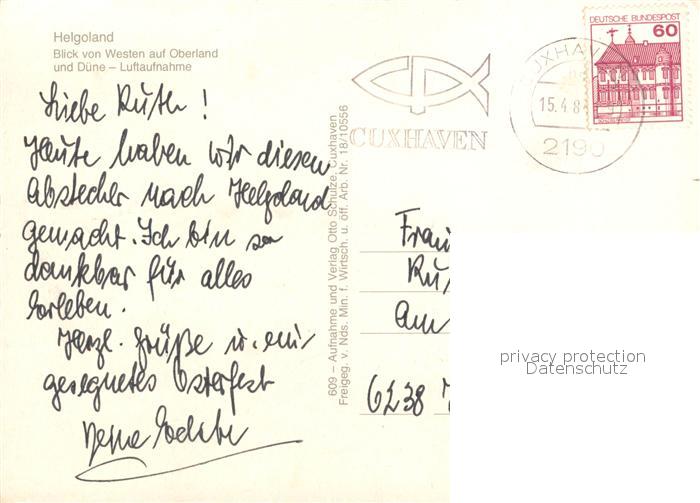 Helgoland
Blick von Westen auf Oberland
und Düne – Luftaufnahme
Liebe Ruth!
Heute haben wir diesen
Abstecher nach Helgoland
gemacht. Ich bin so
dankbar für alles
Erleben.
Herzl. Grüße u. ein
gesegnetes Osterfest
609 – Aufnahme und Verlag Otto Schulze, Cuxhaven
Freigeg. v. Nds. Min. f. Wirtsch. u. öff. Arb. Nr. 18/10556
CUXHAVEN
CUXHAV
15.4.8
2190
DEUTSCHE BUNDESPOST
60
Frau
Ru
Am
6238
privacy protection
Datenschutz